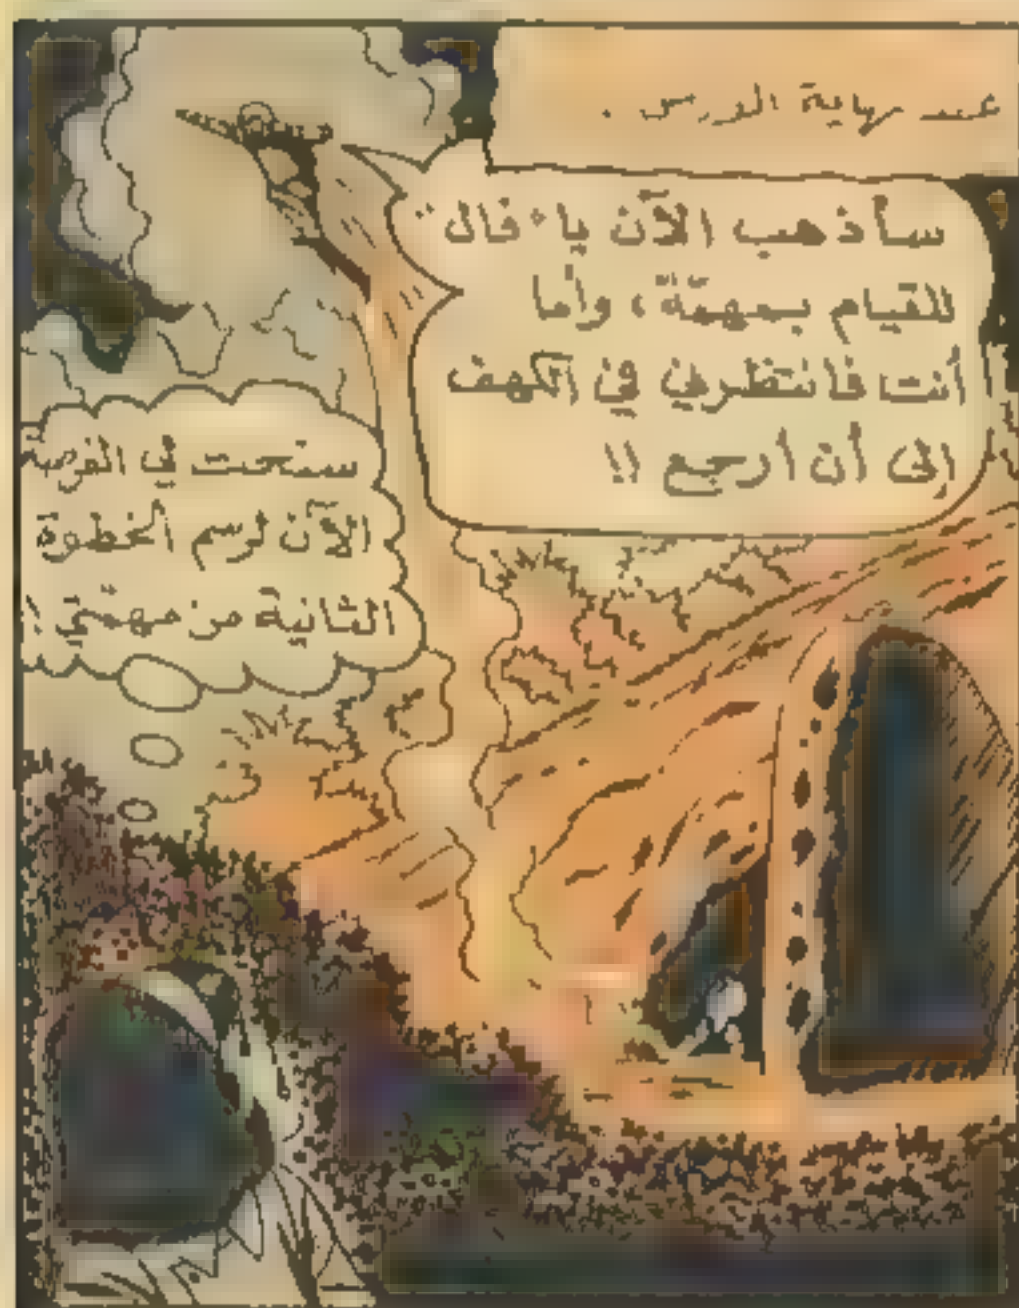 عند نهاية الدرس .
سأذهب الآن يا "فال"
للقيام بمهمّة ، وأما
أنت فانتظريني في الكهف
إلى أن أرجع !!
سنحت لي الفرصة
الآن لرسم الخطوة
الثانية من مهمّتي !